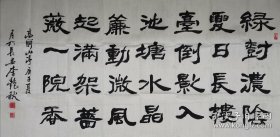 綠樹濃陰
夏日長樓
臺倒影入
池塘水晶
簾動微風
起滿架薔
薇一院香